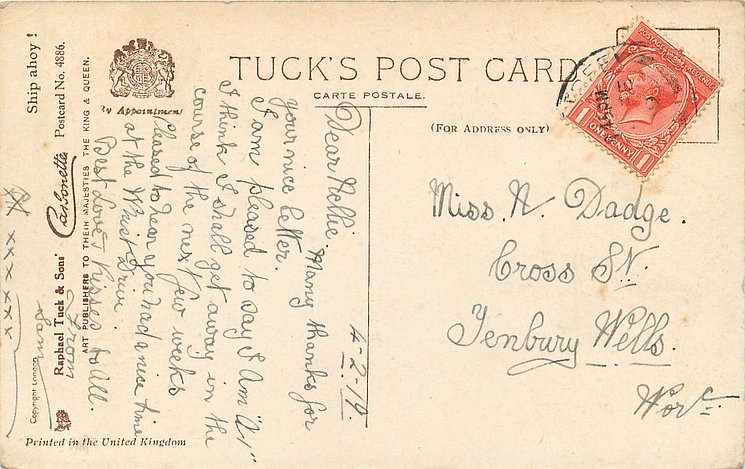 TUCK'S POST CARD
CARTE POSTALE.
(FOR ADDRESS ONLY)
By Appointment
Ship ahoy!
Postcard No. 4886.
Carbonette
Raphael Tuck & Sons'
ART PUBLISHERS TO THEIR MAJESTIES THE KING & QUEEN.
Copyright London
Printed in the United Kingdom
POSTAGE REVENUE
1 ONE PENNY 1
4-2-19.
Dear Nellie. Many thanks for
your nice letter.
I am pleased to say I am "A1"
I think I shall get away in the
course of the next few weeks
Pleased to hear you had a nice time
at the Whist Drive.
Best love & Kisses to all.
From
x x x x x x
Miss. N. Dadge.
Cross St.
Tenbury Wells.
Worc.